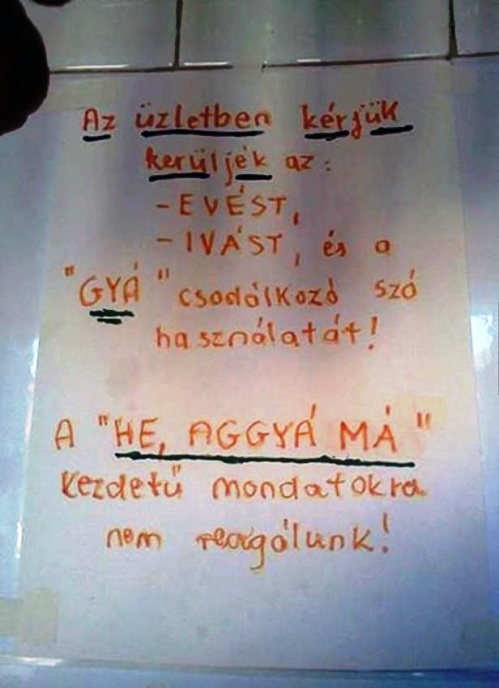 Az üzletben kérjük
kerüljék az:
- EVÉST,
- IVÁST, és a
"GYÁ" csodálkozó szó
használatát!
A "HE, AGGYÁ MÁ"
kezdetű mondatokra
nem reagálunk!